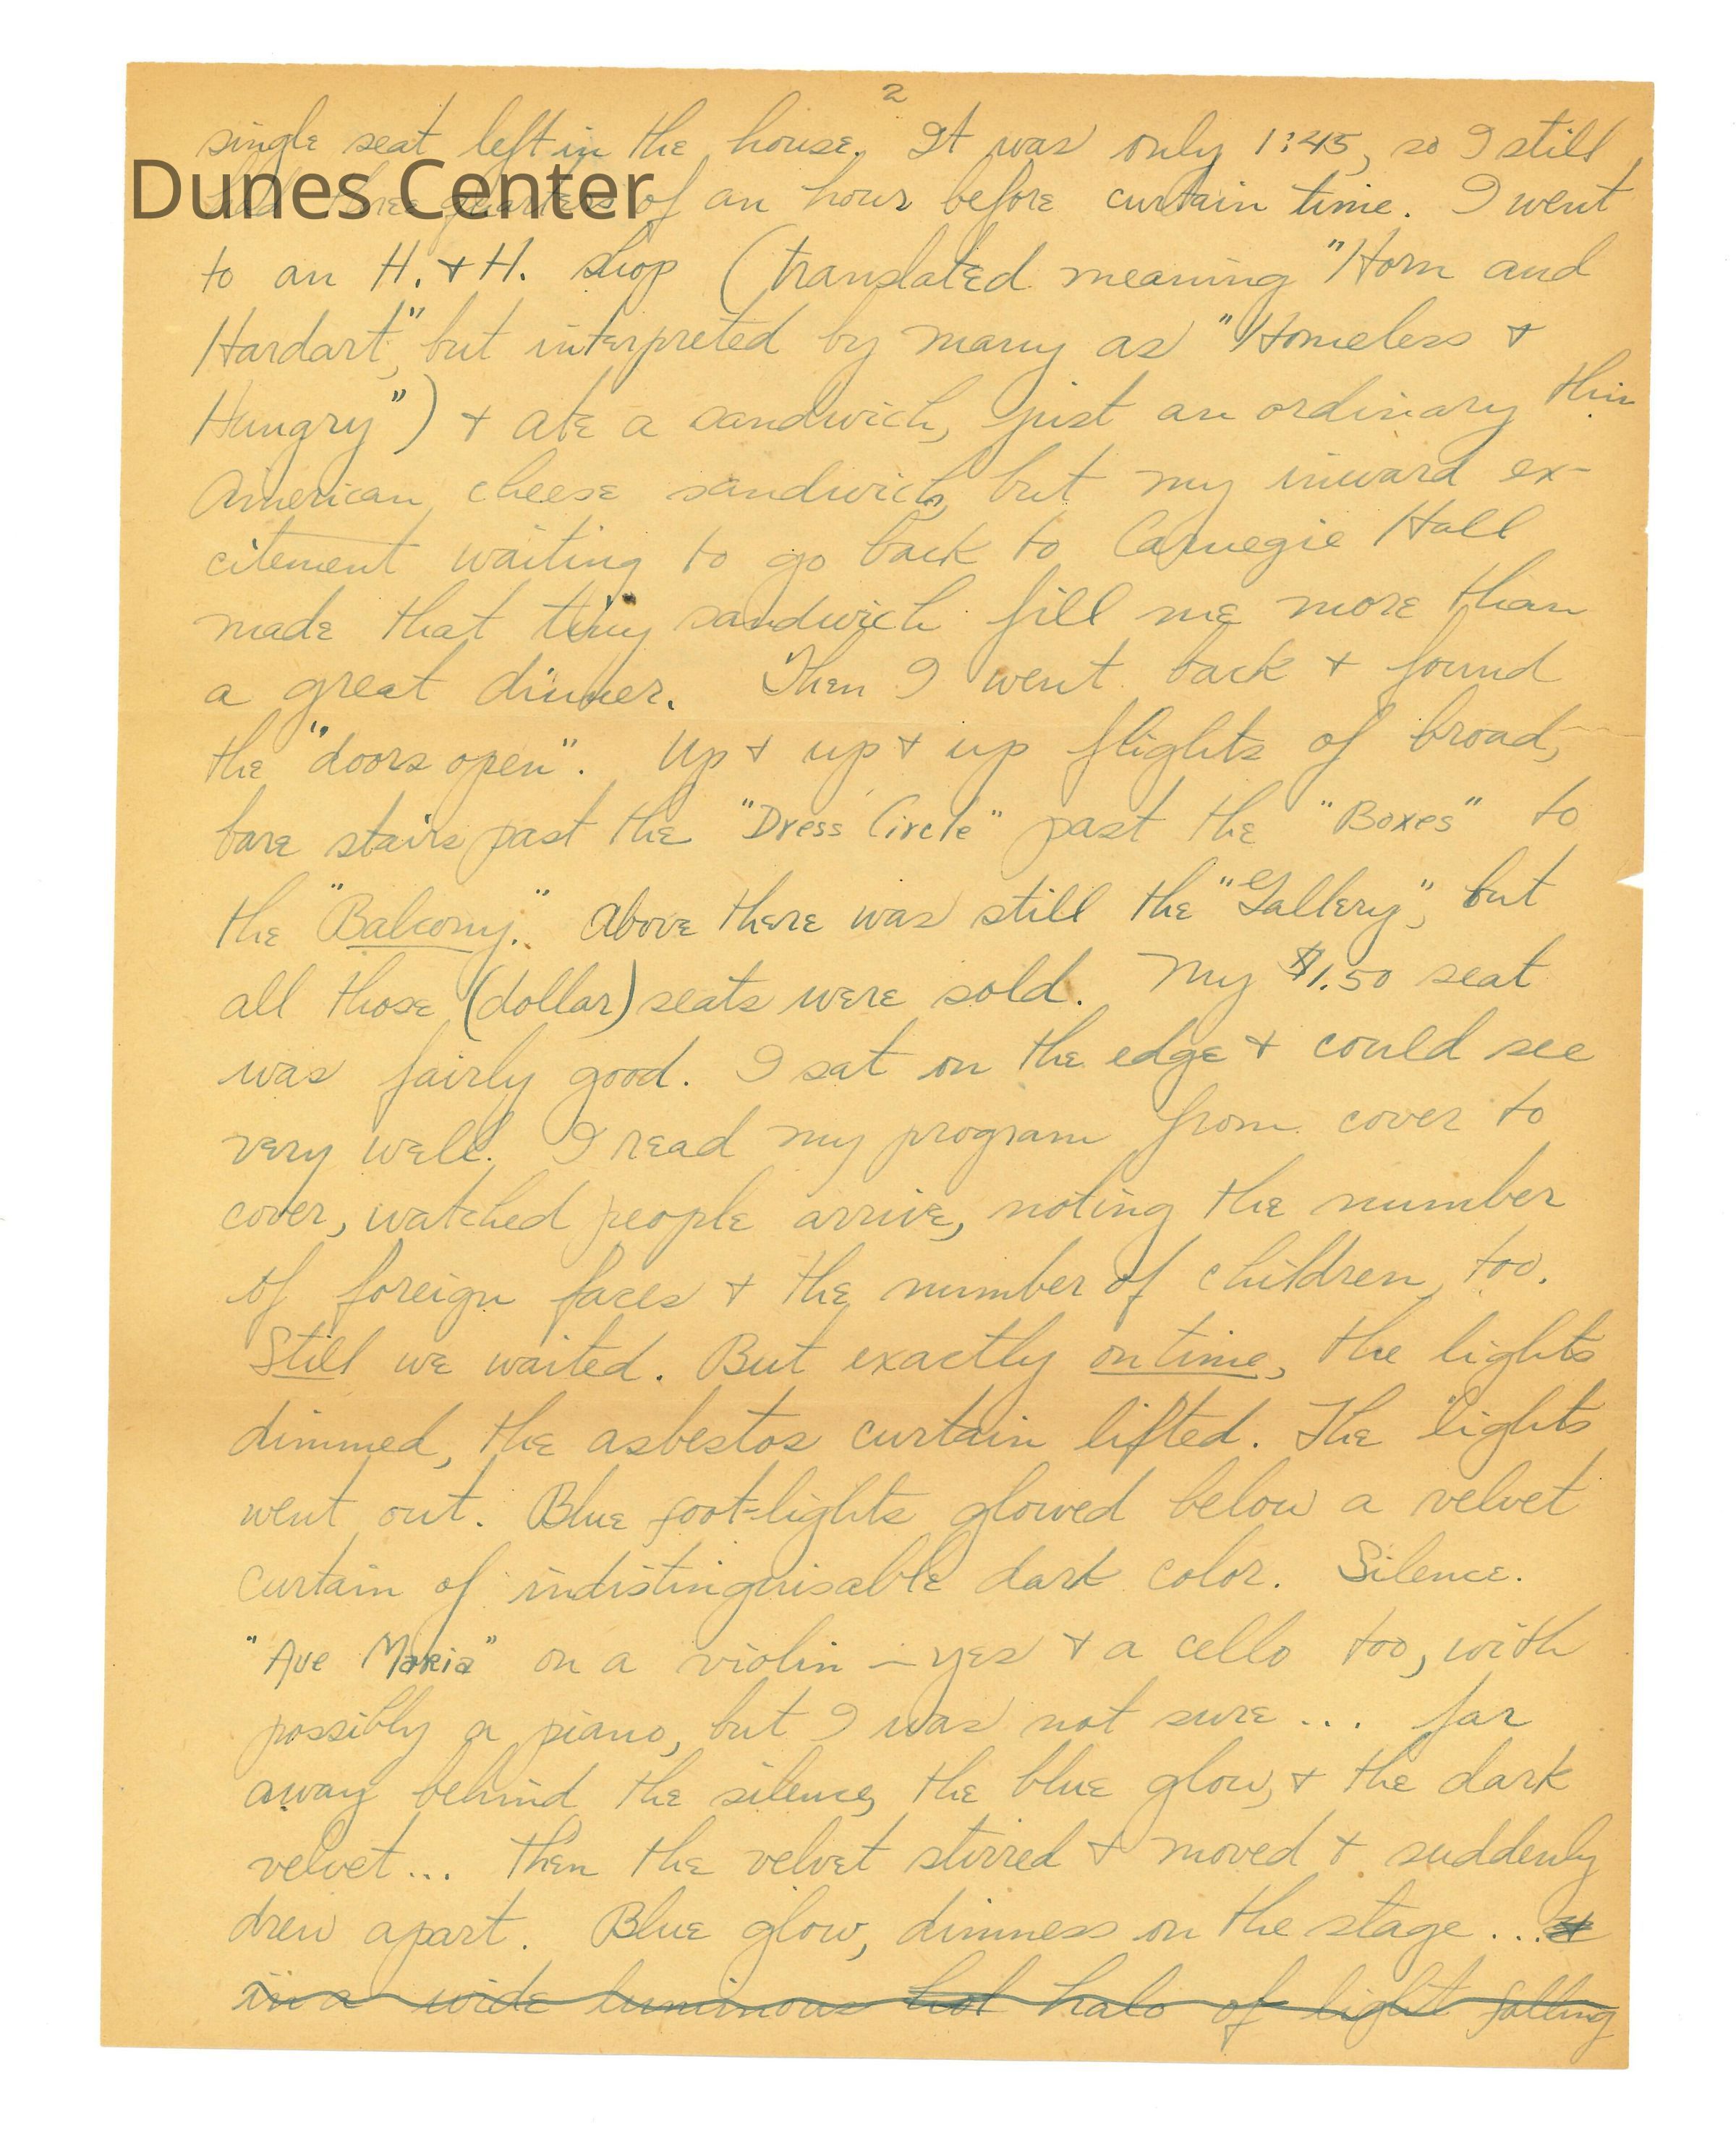 2
single seat left in the house. It was only 1:45, so I still
Dunes Center
had three quarters of an hour before curtain time. I went
to an H. + H. shop (translated meaning "Horn and
Hardart," but interpreted by many as "Homeless +
Hungry") + ate a sandwich, just an ordinary thin
American cheese sandwich, but my inward ex-
citement waiting to go back to Carnegie Hall
made that tiny sandwich fill me more than
a great dinner. Then I went back + found
the "doors open". Up + up + up flights of broad,
bare stairs past the "Dress Circle" past the "Boxes" to
the "Balcony." Above there was still the "Gallery", but
all those (dollar) seats were sold. My $1.50 seat
was fairly good. I sat on the edge + could see
very well. I read my program from cover to
cover, watched people arrive, noting the number
of foreign faces + the number of children, too.
Still we waited. But exactly on time, the lights
dimmed, the asbestos curtain lifted. The lights
went out. Blue foot-lights glowed below a velvet
curtain of indistinguisable dark color. Silence.
"Ave Maria" on a violin — yes + a cello too, with
possibly a piano, but I was not sure ... far
away behind the silence, the blue glow, + the dark
velvet... Then the velvet stirred + moved + suddenly
drew apart. Blue glow, dimness on the stage ...
in a wide luminous halo of light falling